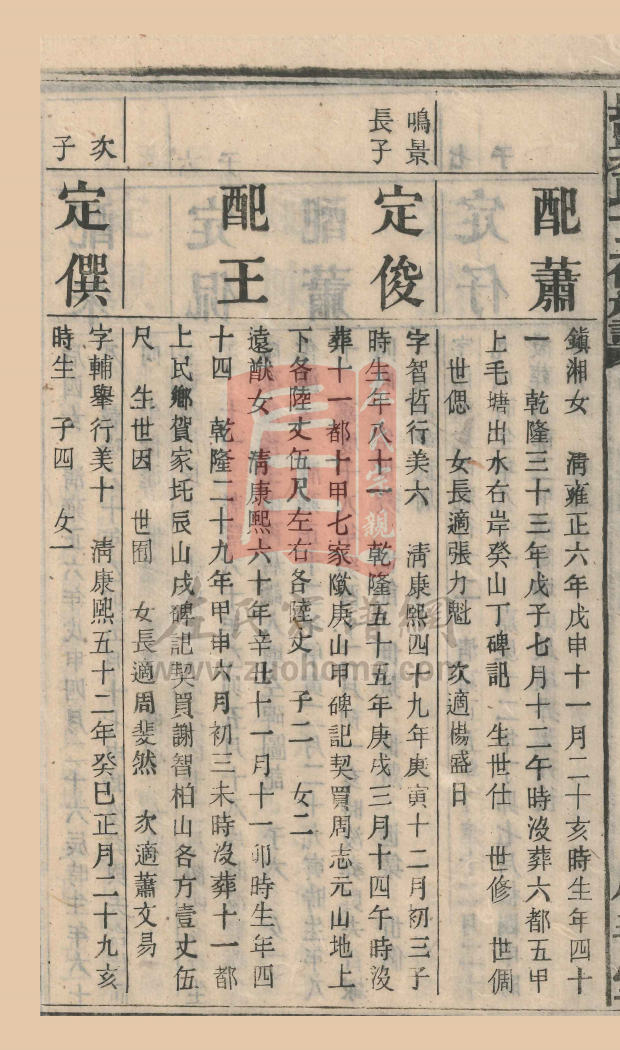 配蕭
鎮湘女 淸雍正六年戊申十一月二十亥時生年四十
一 乾隆三十三年戊子七月十二午時沒葬六都五甲
上毛塘出水右岸癸山丁碑記 生世仕 世修 世倜
世偲 女長適張力魁 次適楊盛日
鳴景
長子
定俊
字智哲行美六 淸康熙四十九年庚寅十二月初三子
時生年八十一 乾隆五十五年庚戌三月十四午時沒
葬十一都十甲七家㘔庚山甲碑記契買周志元山地上
下各陸丈伍尺左右各陸丈 子二 女二
配王
遠猷女 淸康熙六十年辛丑十一月十一卯時生年四
十四 乾隆二十九年甲申六月初三未時沒葬十一都
上民鄉賀家圫辰山戌碑記契買謝智柏山各方壹丈伍
尺 生世因 世囿 女長適周斐然 次適蕭文易
次
子
定僎
字輔舉行美十 淸康熙五十二年癸巳正月二十九亥
時生 子四 女一
左氏家譜網
www.zuohome.com